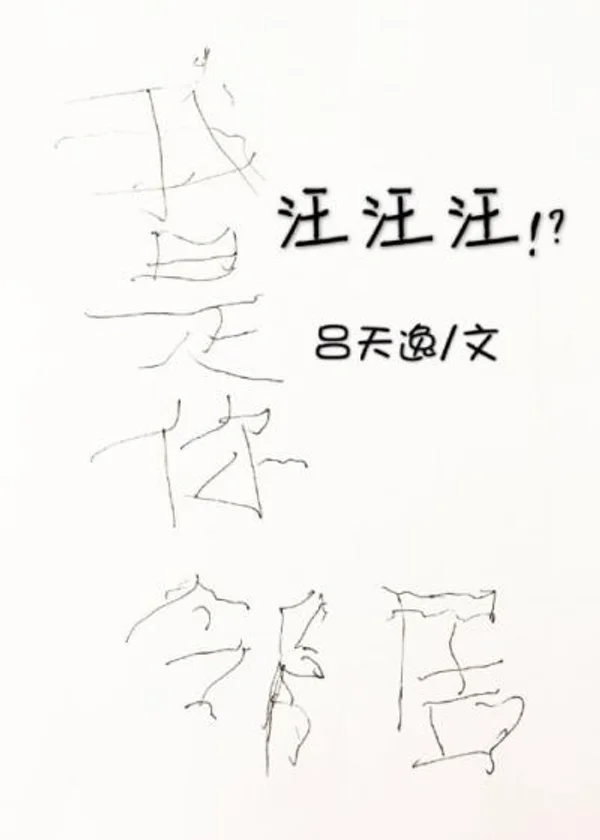 我
是
你
邻居
汪汪汪!?
吕天逸/文